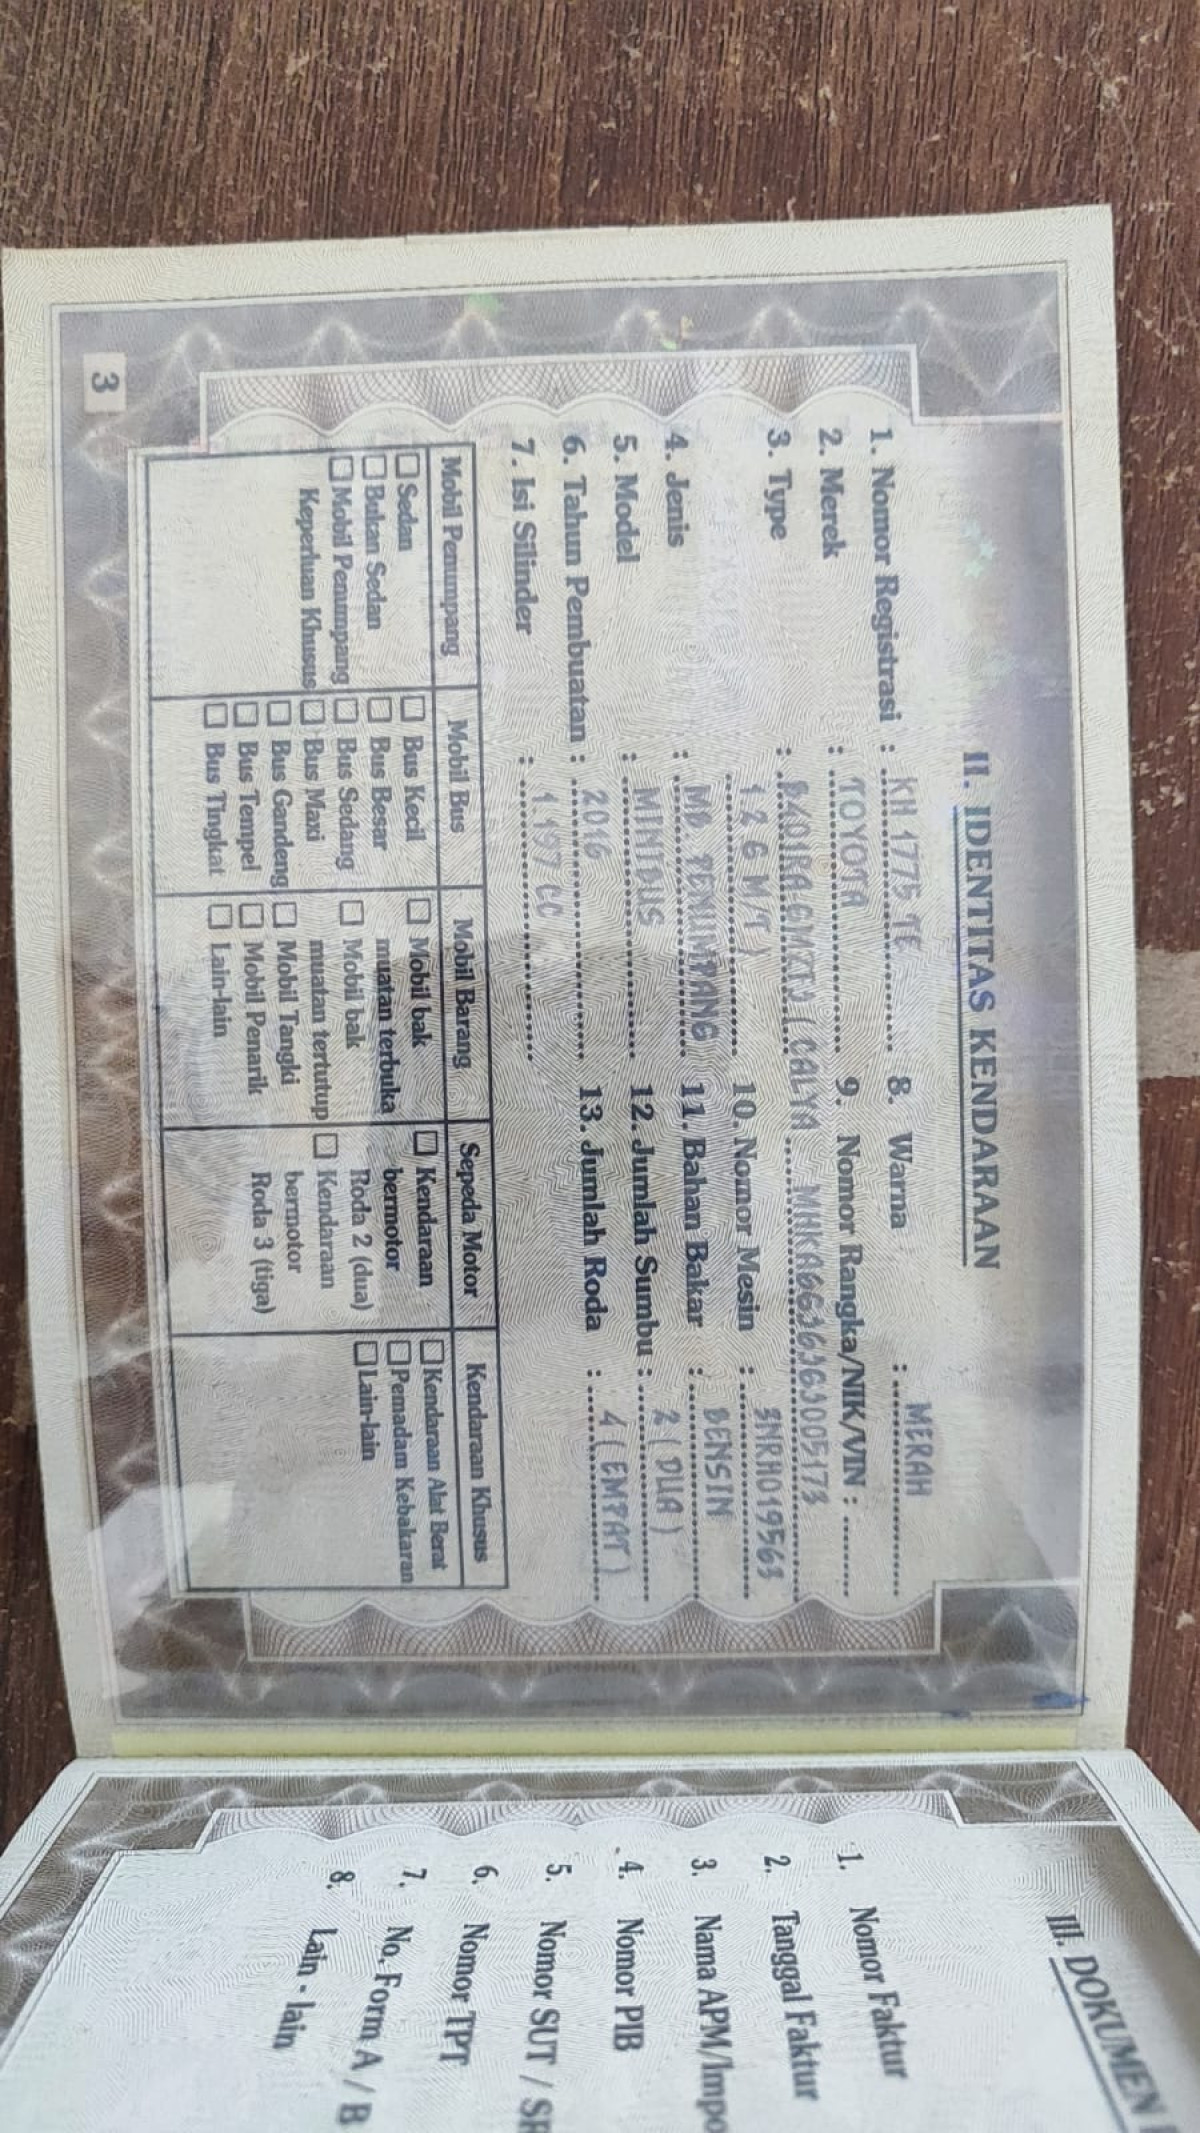 II. IDENTITAS KENDARAAN
1. Nomor Registrasi : KH 1775 TE
2. Merek : TOYOTA
3. Type : B401RA-GMZFJ (CALYA
1.2 G M/T)
4. Jenis : MB. PENUMPANG
5. Model : MINIBUS
6. Tahun Pembuatan : 2016
7. Isi Silinder : 1.197 CC
8. Warna : MERAH
9. Nomor Rangka/NIK/VIN :
MHKA6GJ6JGJ005173
10. Nomor Mesin : 3NRH019563
11. Bahan Bakar : BENSIN
12. Jumlah Sumbu : 2 ( DUA )
13. Jumlah Roda : 4 ( EMPAT )
Mobil Penumpang
Sedan
Bukan Sedan
Mobil Penumpang
Keperluan Khusus
Mobil Bus
Bus Kecil
Bus Besar
Bus Sedang
Bus Maxi
Bus Gandeng
Bus Tempel
Bus Tingkat
Mobil Barang
Mobil bak
muatan terbuka
Mobil bak
muatan tertutup
Mobil Tangki
Mobil Penarik
Lain-lain
Sepeda Motor
Kendaraan
bermotor
Roda 2 (dua)
Kendaraan
bermotor
Roda 3 (tiga)
Kendaraan Khusus
Kendaraan Alat Berat
Pemadam Kebakaran
Lain-lain
3
III. DOKUMEN
1. Nomor Faktur
2. Tanggal Faktur
3. Nama APM/Impo
4. Nomor PIB
5. Nomor SUT / SR
6. Nomor TPT
7. No. Form A / B
8. Lain - lain